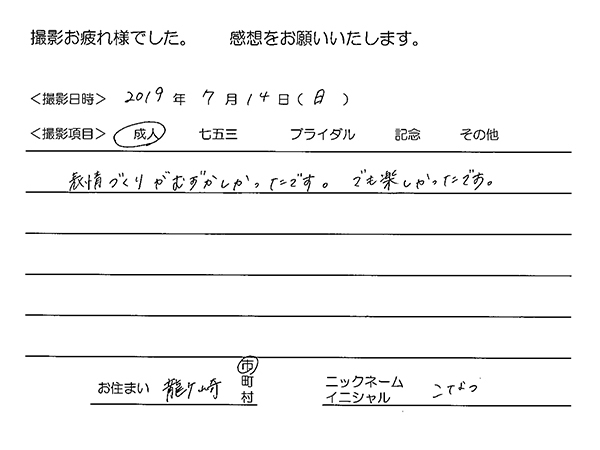 撮影お疲れ様でした。 感想をお願いいたします。
＜撮影日時＞ 2019 年 7 月 14 日（日）
＜撮影項目＞ 成人 七五三 ブライダル 記念 その他
表情づくりがむずかしかったです。 でも楽しかったです。
お住まい 龍ケ崎 市 町 村
ニックネーム イニシャル こなつ